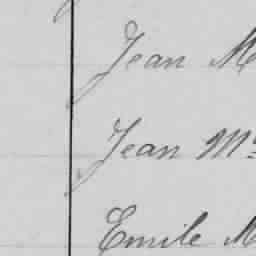 Jean M
Jean Mc
Emile M